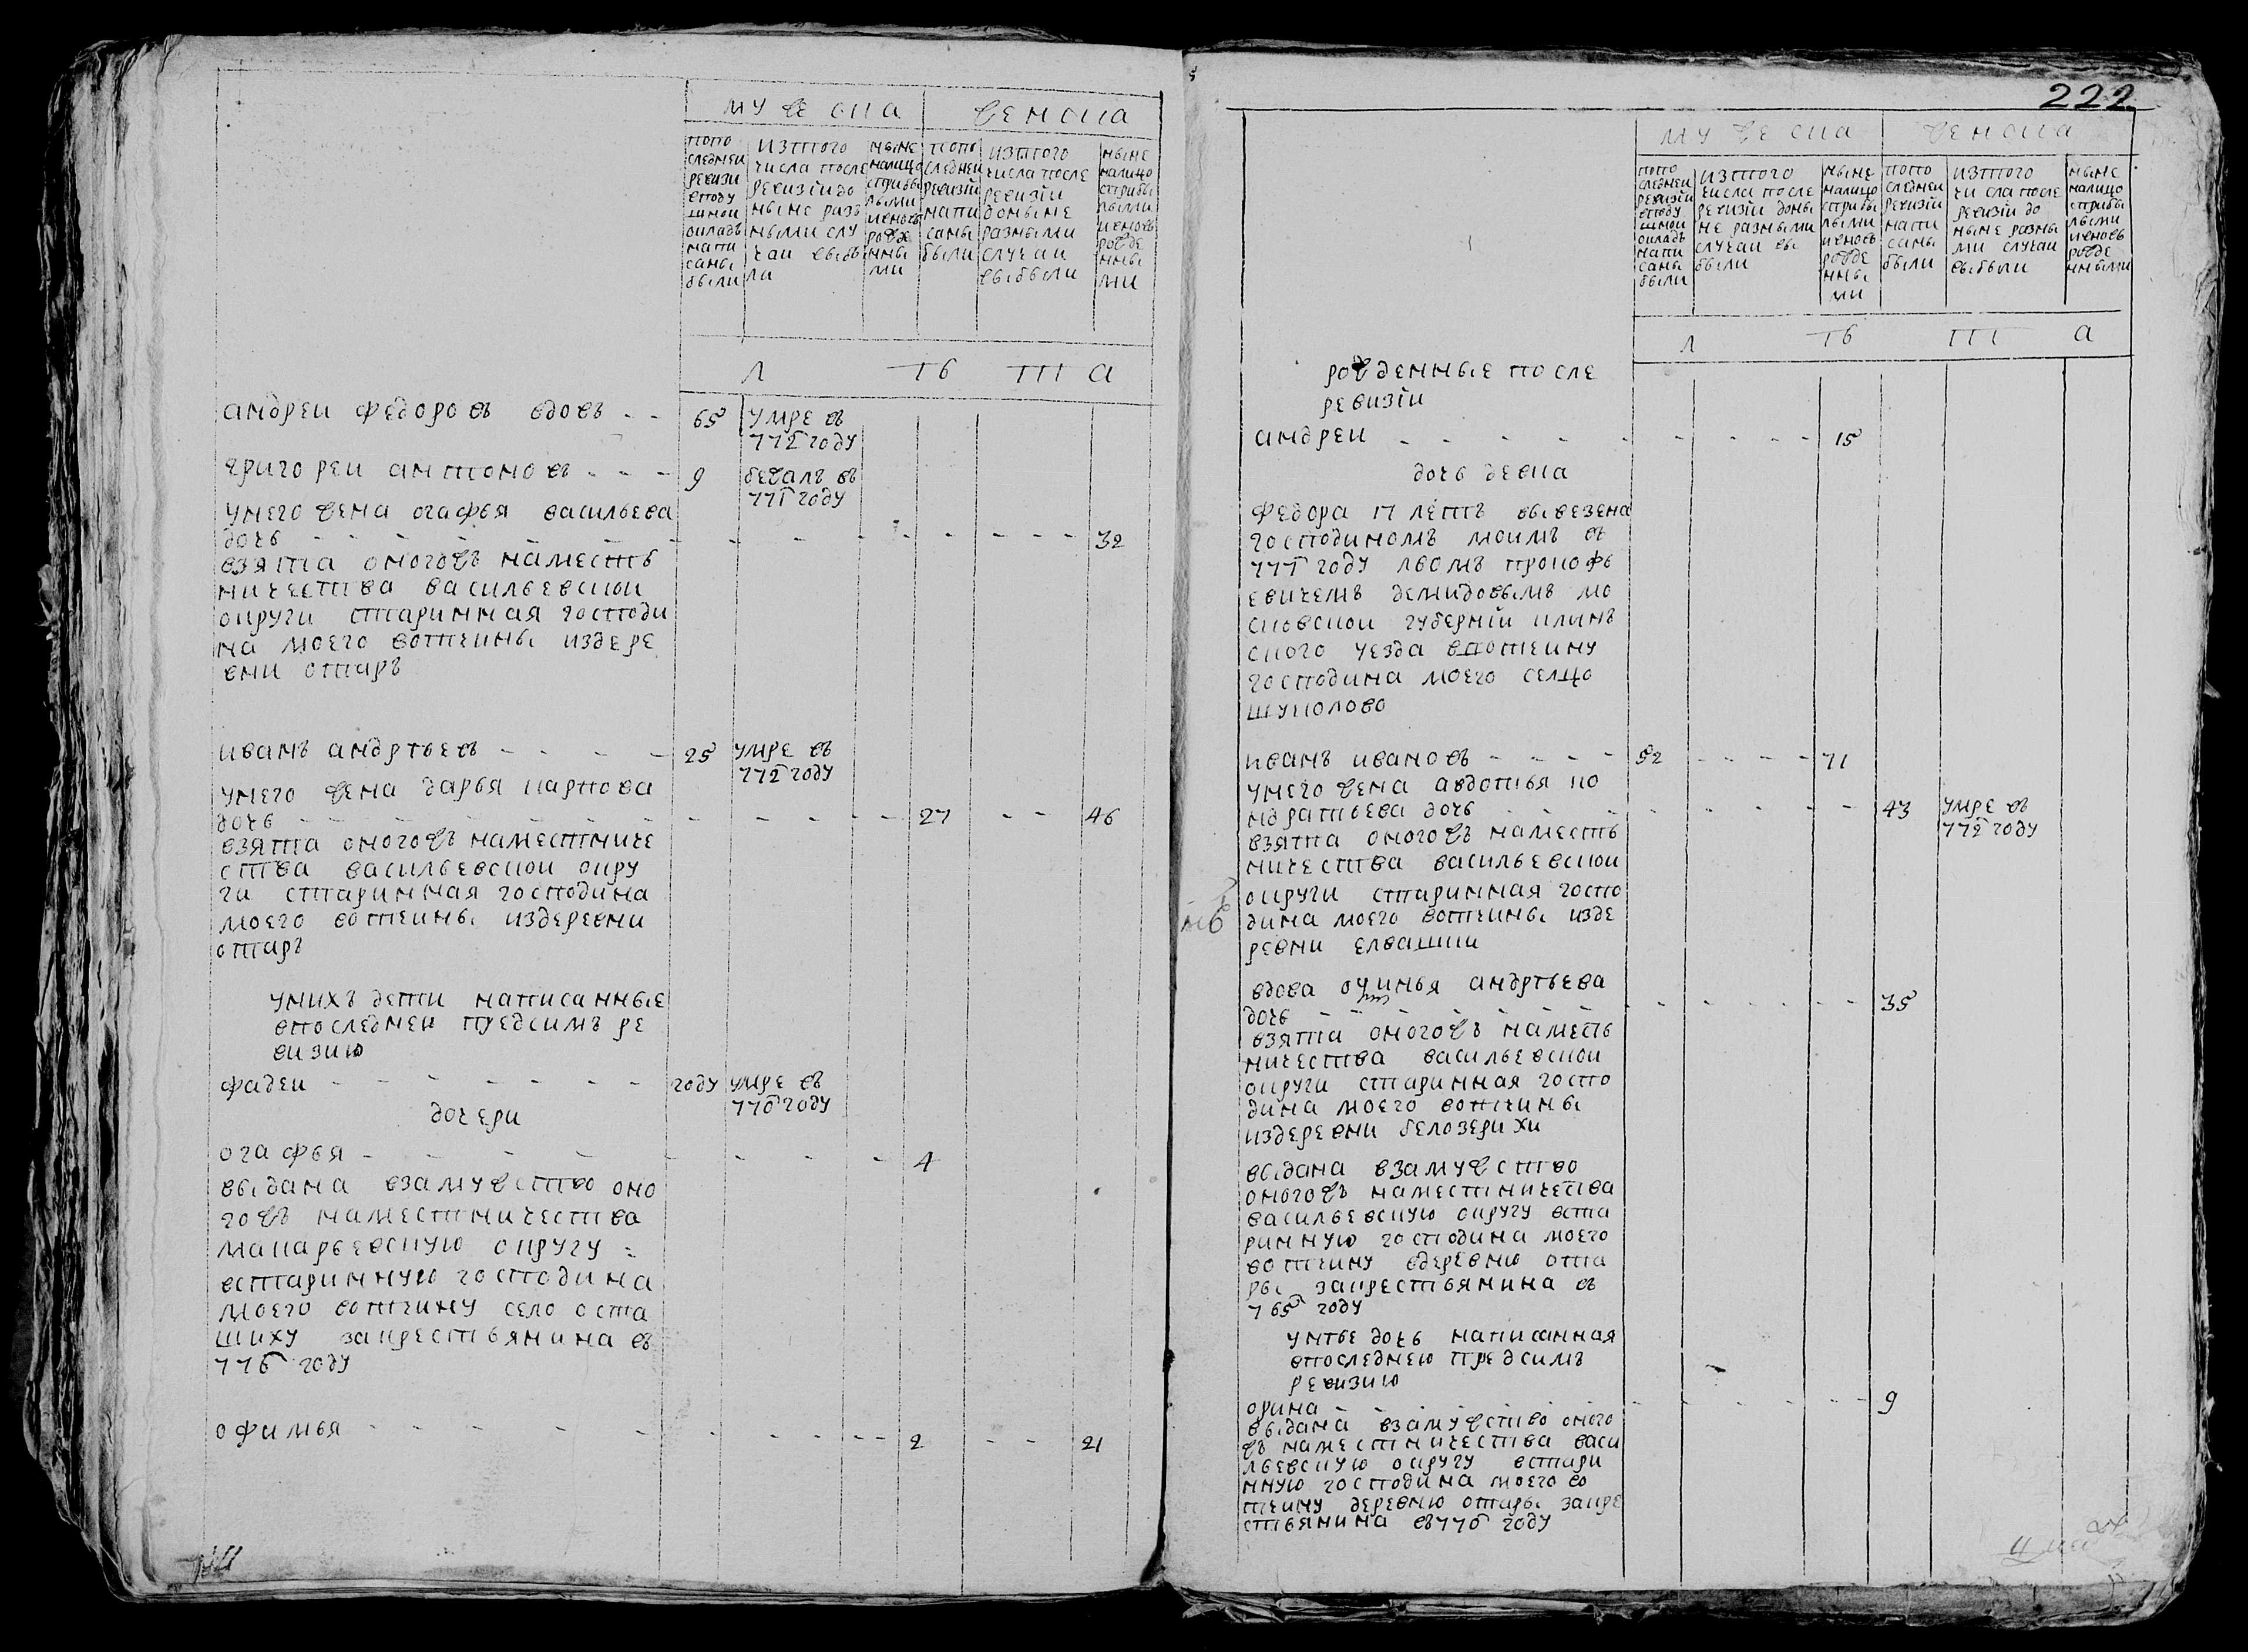 мужеска
женска
попо
следнеи
ревизи
вподу
шнои
окладъ
напи
саны
были
изтого
числа после
ревизіи до
ныне раз
ными слу
чаи выбы
ли
ныне
налицо
сприбы
лыми
ивновь
рожде
нны
ми
попо
следнеи
ревизіи
напи
саны
были
изтого
числа после
ревизіи
доныне
разными
случаи
выбыли
ныне
налицо
сприбы
лыми
ивновь
рожде
нны
ми
л ѣ т а
андреи федоровъ вдовъ - - 65 умре въ
772 году
григореи антоновъ - - - 9 бежалъ въ
771 году
унего жена огафья васильева
дочь - - - - 32
взята оногожъ наместь
ничества васильевскои
округи старинная господи
на моего вотчины издере
вни отаръ
иванъ андрѣевъ - - - - 25 умре въ
772 году
унего жена дарья карпова
дочь - - - - 27 - - 46
взята оногожъ наместниче
ства васильевскои окру
ги старинная господина
моего вотчины издеревни
отаръ
унихъ дети написанные
впоследнеи предсимъ ре
визию
фадеи - - - - году умре въ
770 году
дочери
огафья - - - - 4
выдана взамужство оно
гожъ наместничества
макарьевскую округу
встаринную господина
моего вотчину село оста
шиху закрестьянина въ
776 году
офимья - - - - 2 - - 21
222
мужеска
женска
попо
следнеи
ревизіи
вподу
шнои
окладъ
напи
саны
были
изтого
числа после
ревизіи доны
не разными
случаи вы
были
ныне
налицо
сприбы
лыми
ивновь
рожде
нны
ми
попо
следнеи
ревизіи
напи
саны
были
изтого
числа после
ревизіи до
ныне разны
ми случаи
выбыли
ныне
налицо
сприбы
лыми
ивновь
рожде
нными
л ѣ т а
рожденные после
ревизіи
андреи - - - - 15
дочь девка
федора п летъ вывезена
господиномъ моимъ въ
771 году львомъ прокофь
евичемъ демидовымъ мо
сковскои губерніи клинъ
ского уезда ввотчину
господина моего селцо
шуколово
иванъ ивановъ - - - - 52 - - - - 71
унего жена авдотья ко
ндратьева дочь - - - - 43 умре въ
772 году
взята оногожъ наместь
ничества васильевскои
округи старинная госпо
дина моего вотчины изде
ревни елвашки
вдова андрѣева
дочь - - - - 35
взята оногожъ наместь
ничества васильевскои
округи старинная госпо
дина моего вотчины
издеревни белозерихи
выдана взамужство
оногожъ наместничества
васильевскую округу вста
ринную господина моего
вотчину вдеревню ота
ры закрестьянина въ
765 году
унѣе дочь написанная
впоследнею предсимъ
ревизию
орина - - - - 9
выдана взамужство оного
жъ наместничества васи
льевскую округу встари
нную господина моего во
тчину деревню отары закре
стьянина въ770 году